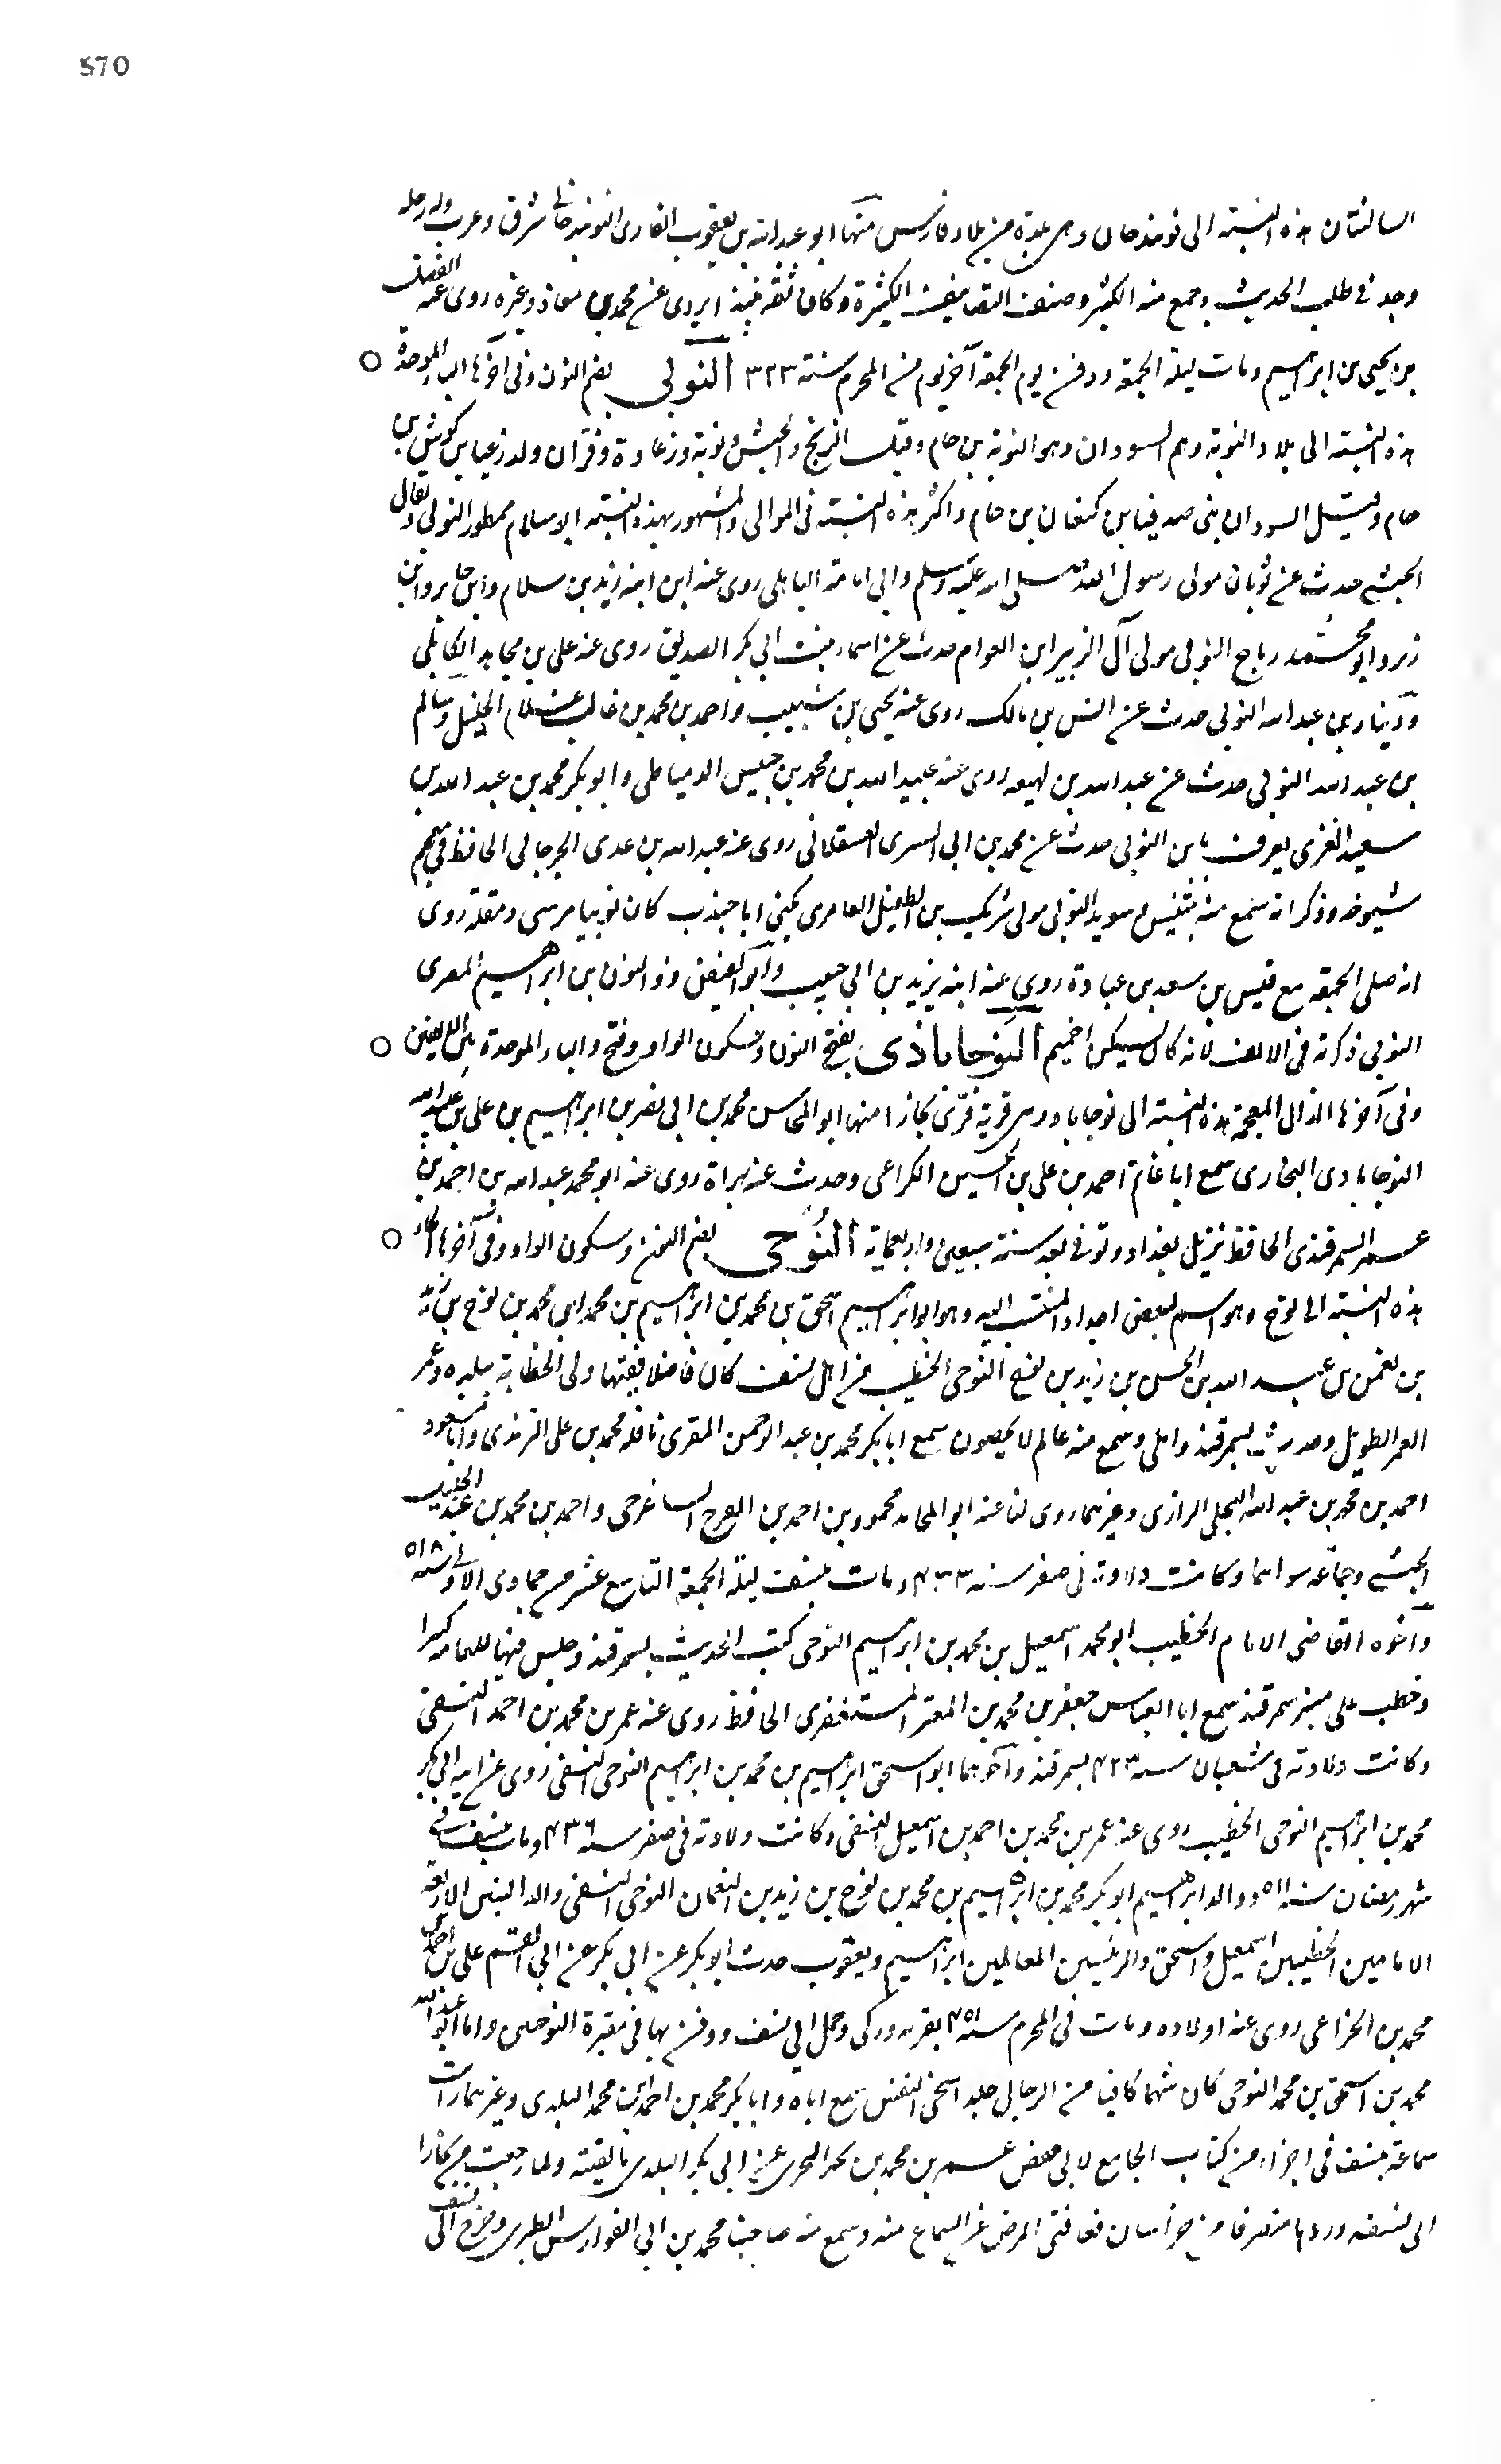 570
الساكنتان هذه النسبة الى نوبندجان وهى بلدة من بلاد فارس منها ابو عبد الله بن يعقوب الغازى النوبندجانى شرق وغرب وله رحلة
وجد فى طلب الحديث وجمع منه الكثير وصنف التصانيف الكثيرة وكان ثقة يروى عن محمد بن معاذ وغيره روى عنه الفضل
بن يحيى بن ابراهيم ومات ليلة الجمعة ودفن يوم الجمعة آخر يوم من المحرم سنة ٣٢٣ النوبى بضم النون وفى اخرها الباء الموحدة
هذه النسبة الى بلاد النوبة وهم السودان وهو النوبة بن حام وقيل الزنج والحبش ونوبة وزغاوة وفزان ولد زغيا بن كوش بن
حام وقيل السودان بنى صدقيا بن كنعان بن حام واكثر هذه النسبة فى الموالى والمشهور بهذه النسبة ابو سلام ممطور النوبى ويقال
الحبشى حدث عن ثوبان مولى رسول الله صلى الله عليه وسلم وابى امامة الباهلى روى عنه ابن ابنه زيد بن سلام وابن جابر وابن
زبر وابو محمد رباح النوبى مولى آل الزبير ابن العوام حدث عن اسماء بنت ابى بكر الصديق روى عنه على بن مجاهد الكابلى
ودينار بن عبد الله النوبى حدث عن انس بن مالك روى عنه يحيى بن شبيب واحمد بن محمد بن غالب غلام الخليل وسالم
بن عبد الله النوبى حدث عن عبد الله بن لهيعه روى عنه عبيد الله بن محمد بن خنيس الدمياطى وابو بكر محمد بن عبد الله بن
سعيد الغزى يعرف بابن النوبى حدث عن محمد بن ابى السرى العسقلانى روى عنه عبد الله بن عدى الجرجانى الحافظ فى معجم
شيوخه وذكر انه سمع منه بتنيس وسويد النوبى مولى شريك بن الطفيل العامرى يكنى ابا حبذب كان نوبيا من سى دمقلة روى
انه صلى الجمعة مع قيس بن سعد بن عبادة روى عنه ابنه يزيد بن ابى حبيب وابو الفيض ذو النون بن ابراهيم المصرى
النوبى ذكرته فى الالف لانه كان يسكن اخميم النوجاباذى بفتح النون وسكون الواو وفتح والباء الموحدة بين الالفين
وفى آخرها الذال المعجمة هذه النسبة الى نوجاباد وهى قرية من قرى بخارا منها ابو المحاسن محمد بن ابى نصر بن ابراهيم بن على بن عبد الله
النوجابادى البخارى سمع ابا غانم احمد بن على بن الحسين الكراعى وحدث عنه بهراة روى عنه ابو محمد عبد الله بن احمد بن
عمر السمرقندى الحافظ نزيل بغداد وتوفى بعد سنة سبعين واربعماية النوحى بضم النون وسكون الواو وفى آخرها الحاء
هذه النسبة الى نوح وهو اسم لبعض اجداد المنتسب اليه وهو ابو ابراهيم اسحق بن محمد بن ابراهيم بن محمد ابن محمد بن نوح بن زيد
بن نعمن بن عبد الله بن الحسن بن زيد بن نوح النوحى الخطيب من اهل نسف كان فاضلا فقيها ولى الخطابة ببلده وعمر
العمر الطويل وحدث بسمرقند واملى وسمع منه عالم لا يحصون سمع ابا بكر محمد بن عبد الرحمن المقرى نافلة محمد بن على الترمذى وابا مسعود
احمد بن محمد بن عبد الله البجلى الرازى وغيرهما روى لنا عنه ابو المحامد محمود بن احمد بن الفرج الساغرجى واحمد بن محمد بن عبد الجليل
الحبشى وجماعة سواهما وكانت ولادته فى صفر سنه ٤٣٣ ومات بنسف ليلة الجمعة التاسع عشر من جمادى الاولى سنه ٥١٨
واخوه القاضى الامام الخطيب ابو محمد اسمعيل بن محمد بن ابراهيم النوحى كتب الحديث بسمرقند وجلس فيها للعامة كثيرا
وخطب على منبر سمرقند سمع ابا العباس جعفر بن محمد بن المعتز المستغفرى الحافظ روى عنه عمر بن محمد بن احمد النسفى
وكانت ولادته فى شعبان سنه ٤٢٣ بسمرقند وآخوهما ابو اسحق ابراهيم بن محمد بن ابراهيم النوحى النسفى روى عن ابيه ابى بكر
محمد بن ابراهيم النوحى الخطيب روى عنه عمر بن محمد بن احمد بن اسمعيل النسفى وكانت ولادته فى صفر سنه ٤٣٦ ومات بنسف فى
شهر رمضان سنه ٥١١ ووالد ابراهيم ابو بكر محمد بن ابراهيم بن محمد بن نوح بن زيد بن النعمان النوحى النسفى والد البنين الاربعة
الامامين الخطيبين اسمعيل واسحق والرئيسين العالمين ابراهيم ويعقوب حدث ابو بكر عن ابى بكر عن ابى القسم على بن احمد بن
محمد بن الخزاعى روى عنه اولاده ومات فى المحرم سنه ٤٥١ بقرية وركى وحمل الى نسف ودفن بها فى مقبرة النوحيين واما ابو عبد الله
محمد بن اسحق بن محمد النوحى كان شهما كافيا من الرجال جلدا سخى النفس سمع اباه وابا بكر محمد بن احمد بن محمد البلدى وغيرهما رات
سماعه بنسف فى اجزاء من كتاب الجامع لابى حفص عمر بن محمد بن بحر البحرى عن ابى بكر البلدى بالقيته ولما رجعت من بخارا
الى نسف وردها منصرفا من خراسان فعاقنى المرض عن السماع منه وسمع منه صاحبنا محمد بن ابى الفوارس الطبرى وخرج الى نسف